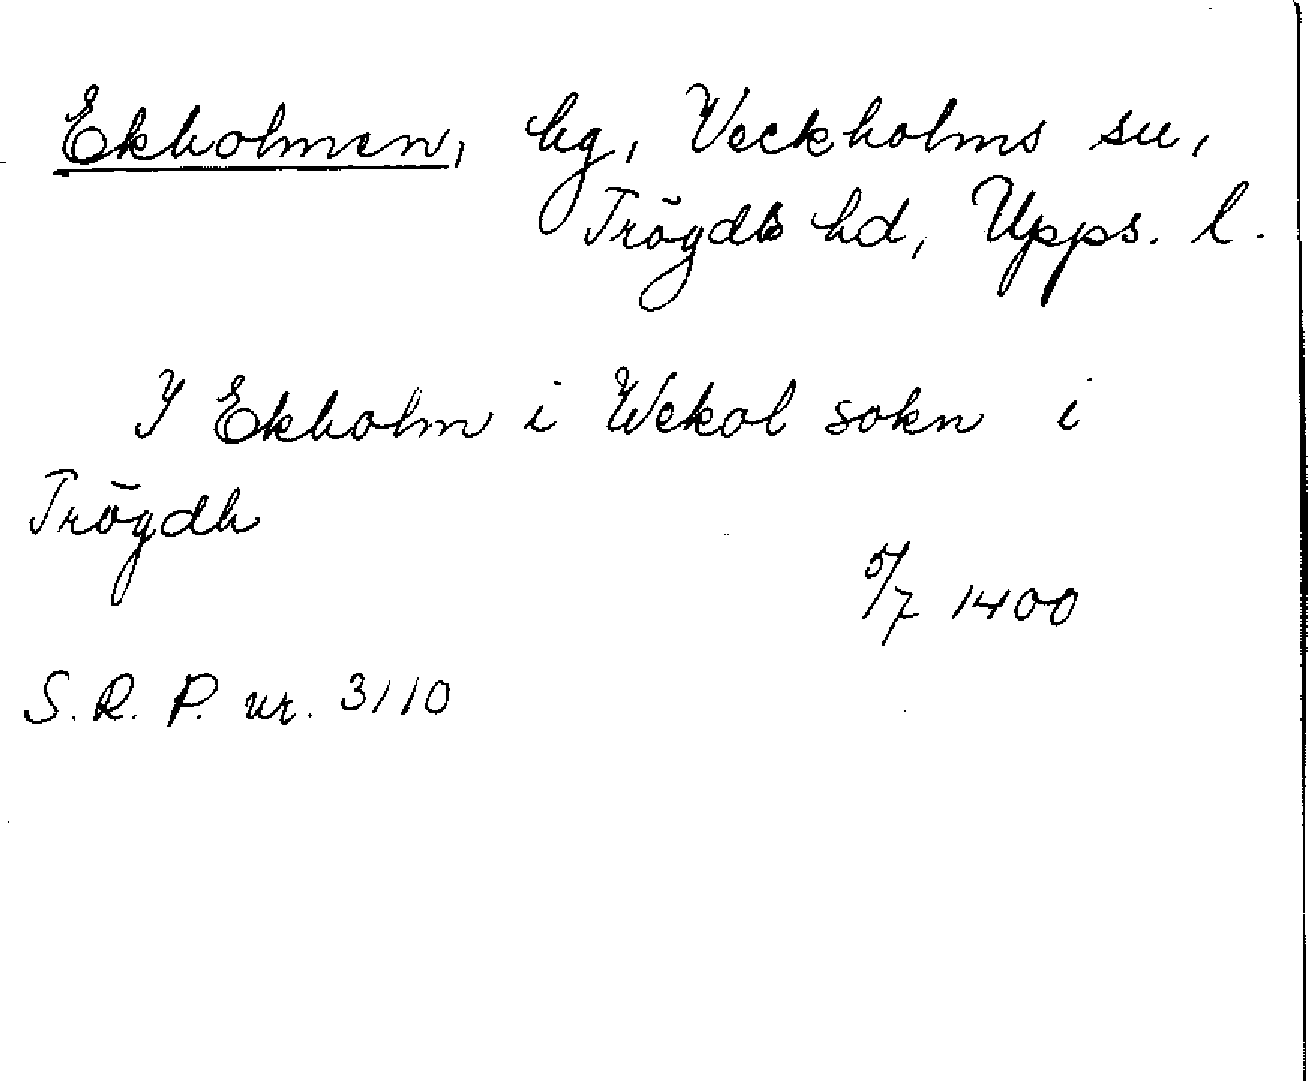 Ekholmen, hg, Veckholms sn,
Trögds hd, Upps. l.
I Ekholm i Wekol sokn i
Trögdh
5/7 1400
S.R.P. nr. 3110